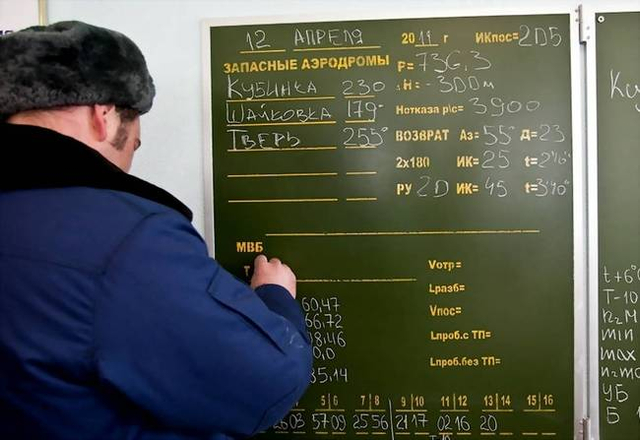 12 АПРЕЛЯ 2011 г ИКпос=2D5
ЗАПАСНЫЕ АЭРОДРОМЫ P=736,3
КУБИНКА 230 H=-300м
ШАЙКОВКА 179° Hотказа р/с=3900
ТВЕРЬ 255° ВОЗВРАТ Аз=55° Д=23
2x180 ИК=25 t=2'16"
РУ 2D ИК=45 t=3'10"
МВБ
Vотр=
Lразб=
60,47
66,72 Vпос=
8,46 Lпроб.с ТП=
0,0
35,14 Lпроб.без ТП=
5|6 7|8 9|10 11|12 13|14 15|16
03 57 09 25 56 21 17 02 16 20
Ку
t+6°
T-10
min
max
УБ
Б